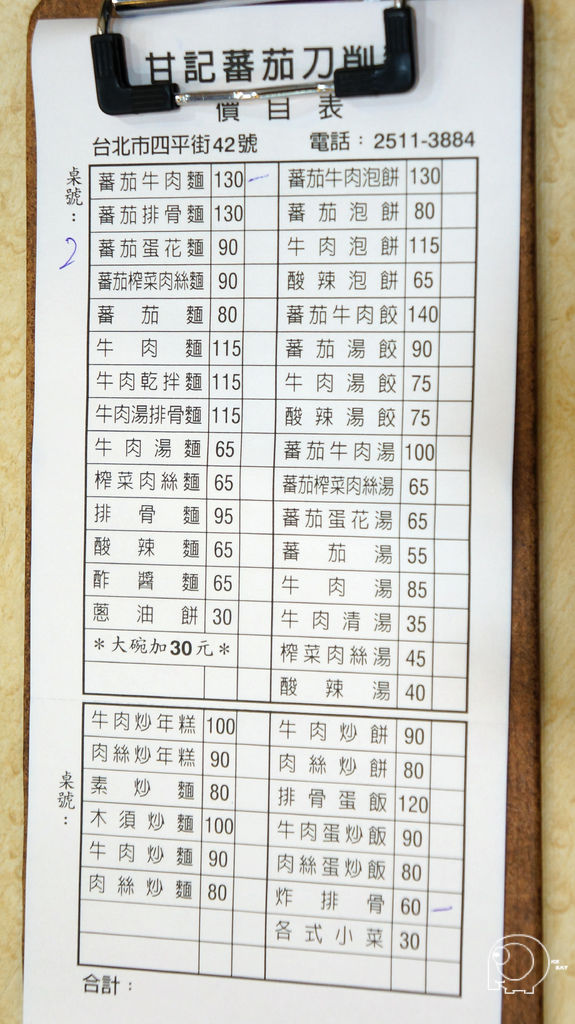 甘記蕃茄刀削
價目表
台北市四平街42號 電話：2511-3884
桌號：2
蕃茄牛肉麵 130
蕃茄排骨麵 130
蕃茄蛋花麵 90
蕃茄榨菜肉絲麵 90
蕃茄麵 80
牛肉麵 115
牛肉乾拌麵 115
牛肉湯排骨麵 115
牛肉湯麵 65
榨菜肉絲麵 65
排骨麵 95
酸辣麵 65
酢醬麵 65
蔥油餅 30
＊大碗加30元＊
蕃茄牛肉泡餅 130
蕃茄泡餅 80
牛肉泡餅 115
酸辣泡餅 65
蕃茄牛肉餃 140
蕃茄湯餃 90
牛肉湯餃 75
酸辣湯餃 75
蕃茄牛肉湯 100
蕃茄榨菜肉絲湯 65
蕃茄蛋花湯 65
蕃茄湯 55
牛肉湯 85
牛肉清湯 35
榨菜肉絲湯 45
酸辣湯 40
桌號：
牛肉炒年糕 100
肉絲炒年糕 90
素炒麵 80
木須炒麵 100
牛肉炒麵 90
肉絲炒麵 80
牛肉炒餅 90
肉絲炒餅 80
排骨蛋飯 120
牛肉蛋炒飯 90
肉絲蛋炒飯 80
炸排骨 60
各式小菜 30
合計：